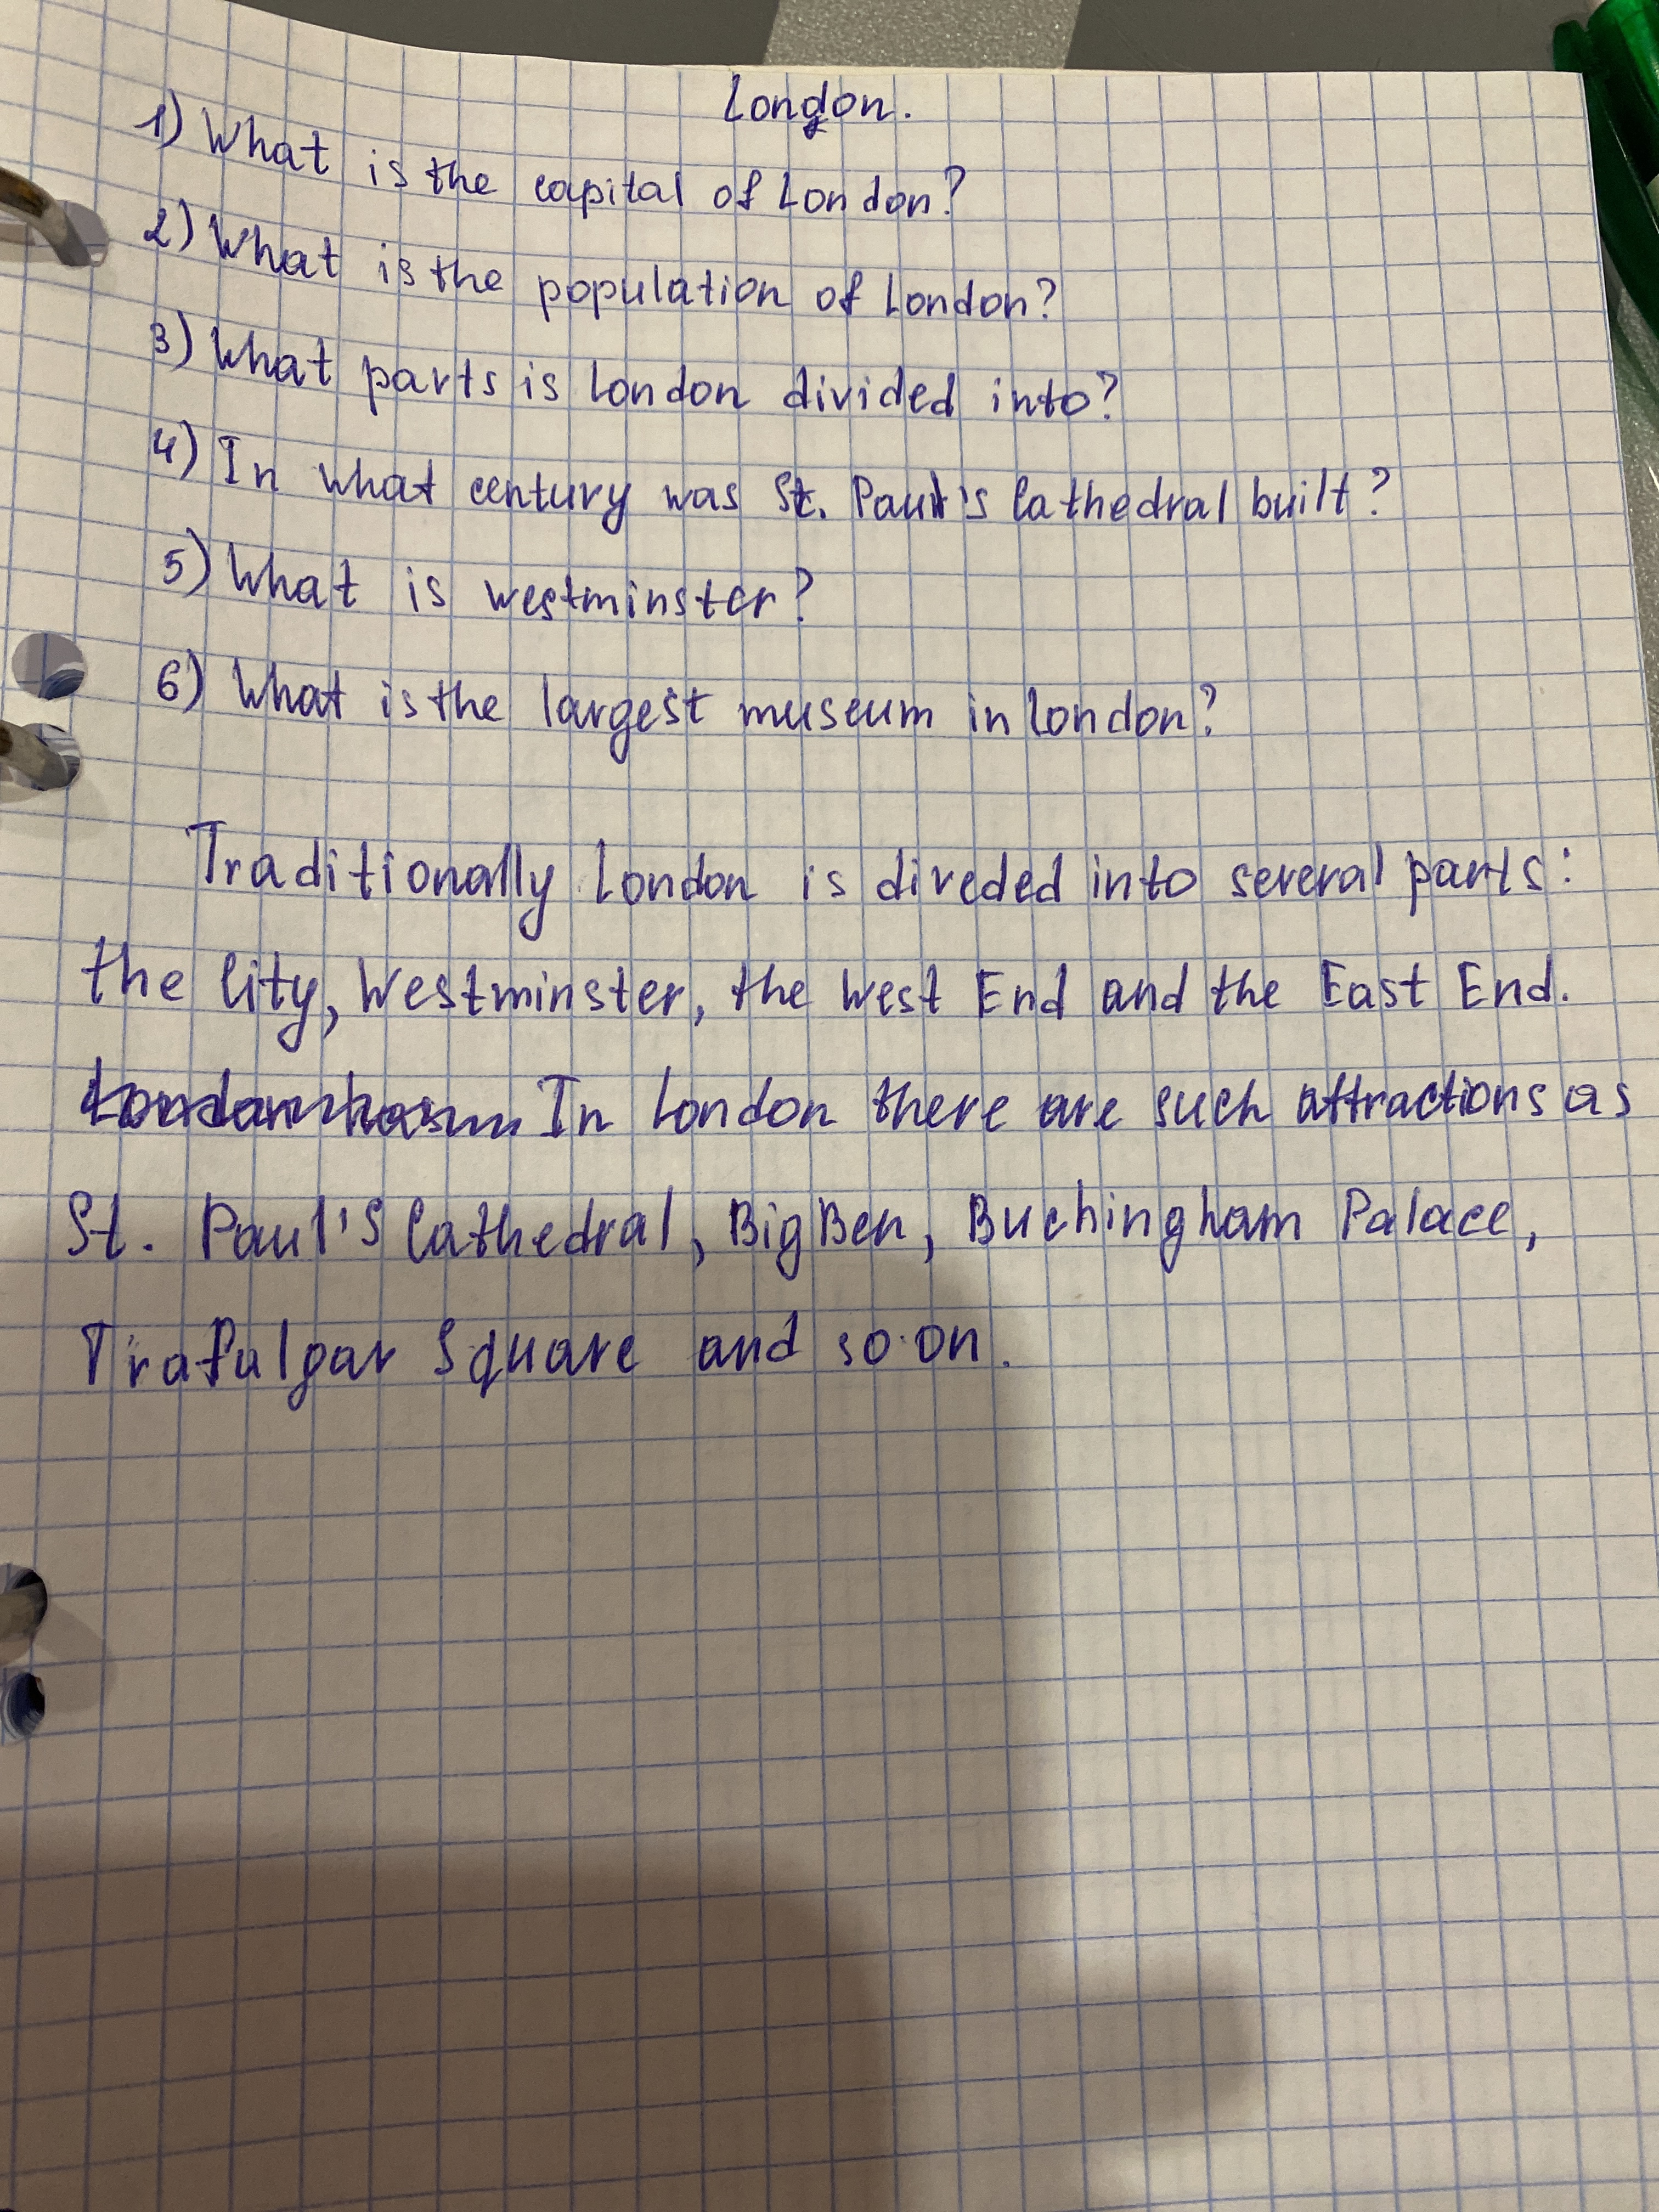 London.
1) What is the capital of London?
2) What is the population of London?
3) What parts is London divided into?
4) In what century was St. Paul's Cathedral built?
5) What is westminster?
6) What is the largest museum in London?
Traditionally London is diveded into several parts:
the City, Westminster, the West End and the East End.
In London there are such attractions as
St. Paul's Cathedral, Big Ben, Buchingham Palace,
Trafalgar Square and so on.